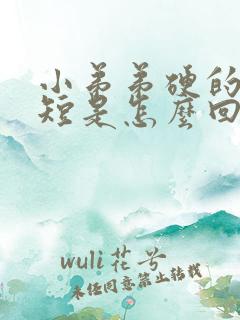 小弟弟硬的
短是怎么回
wuli花兮
未经同意禁止转载